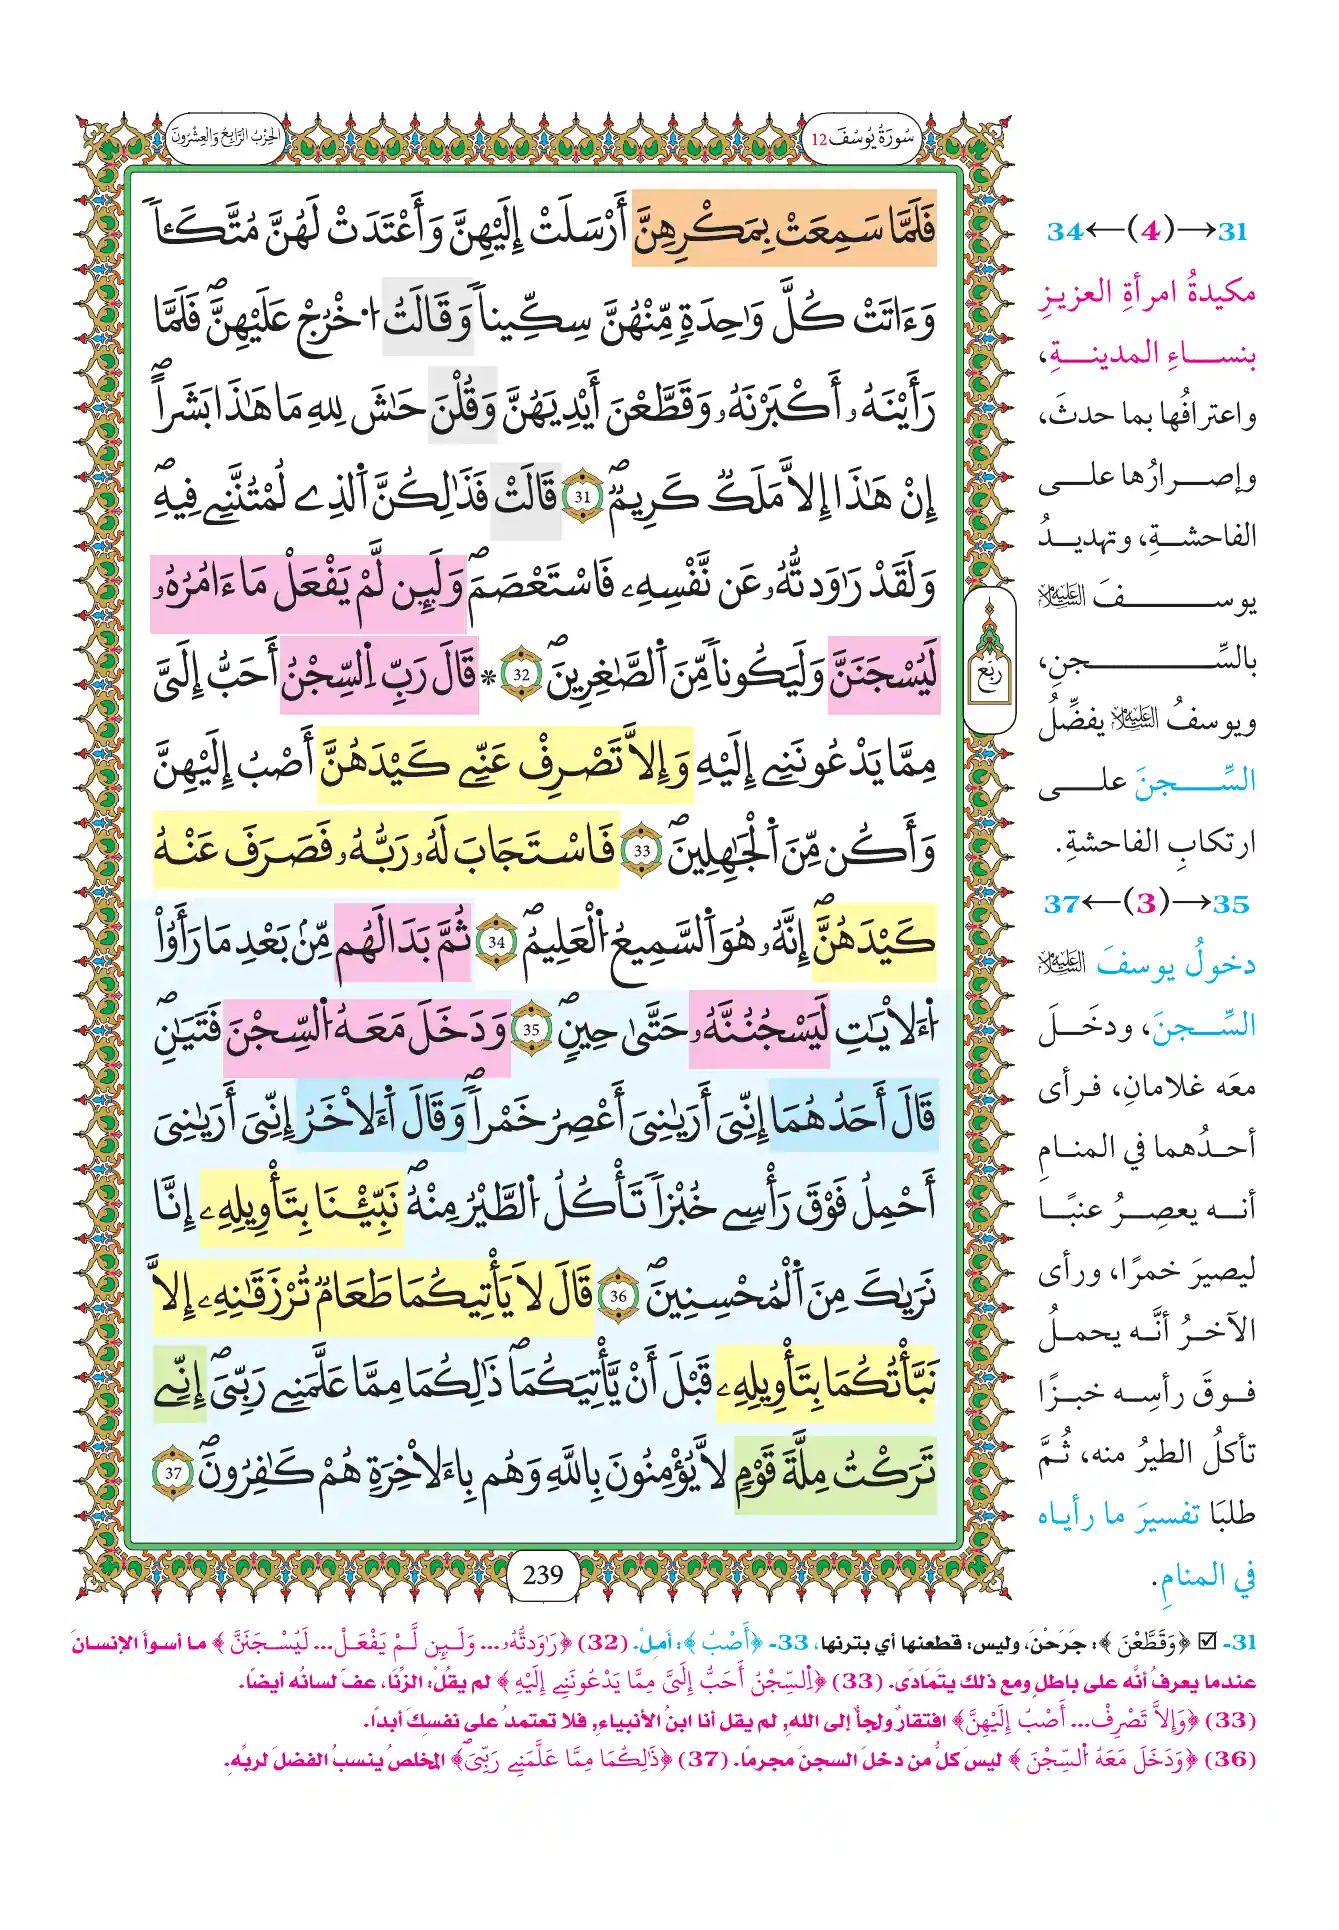 سُورَةُ يُوسُفَ 12
الحِزْبُ الرَّابِعُ وَالعِشْرُونَ
فَلَمَّا سَمِعَتْ بِمَكْرِهِنَّ أَرْسَلَتِ اِلَيْهِنَّ وَأَعْتَدَتْ لَهُنَّ مُتَّكَـٔاٗ
وَءَاتَتْ كُلَّ وَٰحِدَةٖ مِّنْهُنَّ سِكِّيناٗ وَقَالَتُ اُ۟خْرُجْ عَلَيْهِنَّۖ فَلَمَّا
رَأَيْنَهُۥٓ أَكْبَرْنَهُۥ وَقَطَّعْنَ أَيْدِيَهُنَّ وَقُلْنَ حَٰشَ لِلهِ مَا هَٰذَا بَشَراًۖ
إِنْ هَٰذَآ إِلَّا مَلَكٞ كَرِيمٞۖ 31 قَالَتْ فَذَٰلِكُنَّ اَ۬لذِے لُمْتُنَّنِے فِيهِۖ
وَلَقَدْ رَٰوَدتُّهُۥ عَن نَّفْسِهِۦ فَاسْتَعْصَمَۖ وَلَئِن لَّمْ يَفْعَلْ مَآ ءَامُرُهُۥ
لَيُسْجَنَنَّ وَلَيَكُوناٗ مِّنَ اَ۬لصَّٰغِرِينَۖ 32 * قَالَ رَبِّ اِ۬لسِّجْنُ أَحَبُّ إِلَيَّ
مِمَّا يَدْعُونَنِےٓ إِلَيْهِ وَإِلَّا تَصْرِفْ عَنِّے كَيْدَهُنَّ أَصْبُ إِلَيْهِنَّ
وَأَكُن مِّنَ اَ۬لْجَٰهِلِينَۖ 33 فَاسْتَجَابَ لَهُۥ رَبُّهُۥ فَصَرَفَ عَنْهُ
كَيْدَهُنَّۖ إِنَّهُۥ هُوَ اَ۬لسَّمِيعُ اُ۬لْعَلِيمُۖ 34 ثُمَّ بَدَا لَهُم مِّنۢ بَعْدِ مَا رَأَوُاْ
اُ۬لَايَٰتِ لَيَسْجُنُنَّهُۥ حَتَّىٰ حِينٖۖ 35 وَدَخَلَ مَعَهُ اُ۬لسِّجْنَ فَتَيَٰنِۖ
قَالَ أَحَدُهُمَآ إِنِّيَ أَرَىٰنِيَ أَعْصِرُ خَمْراٗۖ وَقَالَ اَ۬لَاخَرُ إِنِّيَ أَرَىٰنِيَ
أَحْمِلُ فَوْقَ رَأْسِے خُبْزاٗ تَأْكُلُ اُ۬لطَّيْرُ مِنْهُۖ نَبِّئْنَا بِتَأْوِيلِهِۦٓ إِنَّا
نَرَىٰكَ مِنَ اَ۬لْمُحْسِنِينَۖ 36 قَالَ لَا يَأْتِيكُمَا طَعَامٞ تُرْزَقَٰنِهِۦٓ إِلَّا
نَبَّأْتُكُمَا بِتَأْوِيلِهِۦ قَبْلَ أَنْ يَّأْتِيَكُمَاۖ ذَٰلِكُمَا مِمَّا عَلَّمَنِے رَبِّيَۖ إِنِّے
تَرَكْتُ مِلَّةَ قَوْمٖ لَّا يُؤْمِنُونَ بِاللَّهِ وَهُم بِالَاخِرَةِ هُمْ كَٰفِرُونَۖ 37
239
ربع
31→(4)←34
مكيدةُ امرأةِ العزيزِ
بنساءِ المدينةِ،
واعترافُها بما حدثَ،
وإصرارُها على
الفاحشةِ، وتهديدُ
يوسفَ عليه السلام
بالسِّجنِ،
ويوسفُ عليه السلام يفضِّلُ
السِّجنَ على
ارتكابِ الفاحشةِ.
35→(3)←37
دخولُ يوسفَ عليه السلام
السِّجنَ، ودخَلَ
معَه غلامانِ، فرأى
أحدُهما في المنامِ
أنه يعصِرُ عنبًا
ليصيرَ خمرًا، ورأى
الآخرُ أنَّه يحملُ
فوقَ رأسِه خبزًا
تأكلُ الطيرُ منه، ثُمَّ
طلبَا تفسيرَ ما رأياه
في المنامِ.
31- ☑ ﴿وَقَطَّعْنَ﴾: جَرَحْنَ، وليس: قطعنها أي بترنها، 33- ﴿أَصْبُ﴾: أَمِلْ. (32) ﴿رَٰوَدتُّهُۥ... وَلَئِن لَّمْ يَفْعَلْ... لَيُسْجَنَنَّ﴾ ما أسوأ الإنسانَ
عندما يعرفُ أنَّه على باطلٍ ومع ذلك يتمَادَى. (33) ﴿اِ۬لسِّجْنُ أَحَبُّ إِلَيَّ مِمَّا يَدْعُونَنِےٓ إِلَيْهِ﴾ لم يقلْ: الزِّنَا، عفَّ لسانُه أيضًا.
(33) ﴿وَإِلَّا تَصْرِفْ... أَصْبُ إِلَيْهِنَّ﴾ افتقارٌ ولجأٌ إلى اللهِ, لم يقل أنا ابنُ الأنبياءِ, فلا تعتمدْ على نفسِكَ أبدًا.
(36) ﴿وَدَخَلَ مَعَهُ اُ۬لسِّجْنَ﴾ ليس كلُّ من دخلَ السجنَ مجرمًا. (37) ﴿ذَٰلِكُمَا مِمَّا عَلَّمَنِے رَبِّيَۖ﴾ المخلصُ ينسبُ الفضلَ لربِّه.